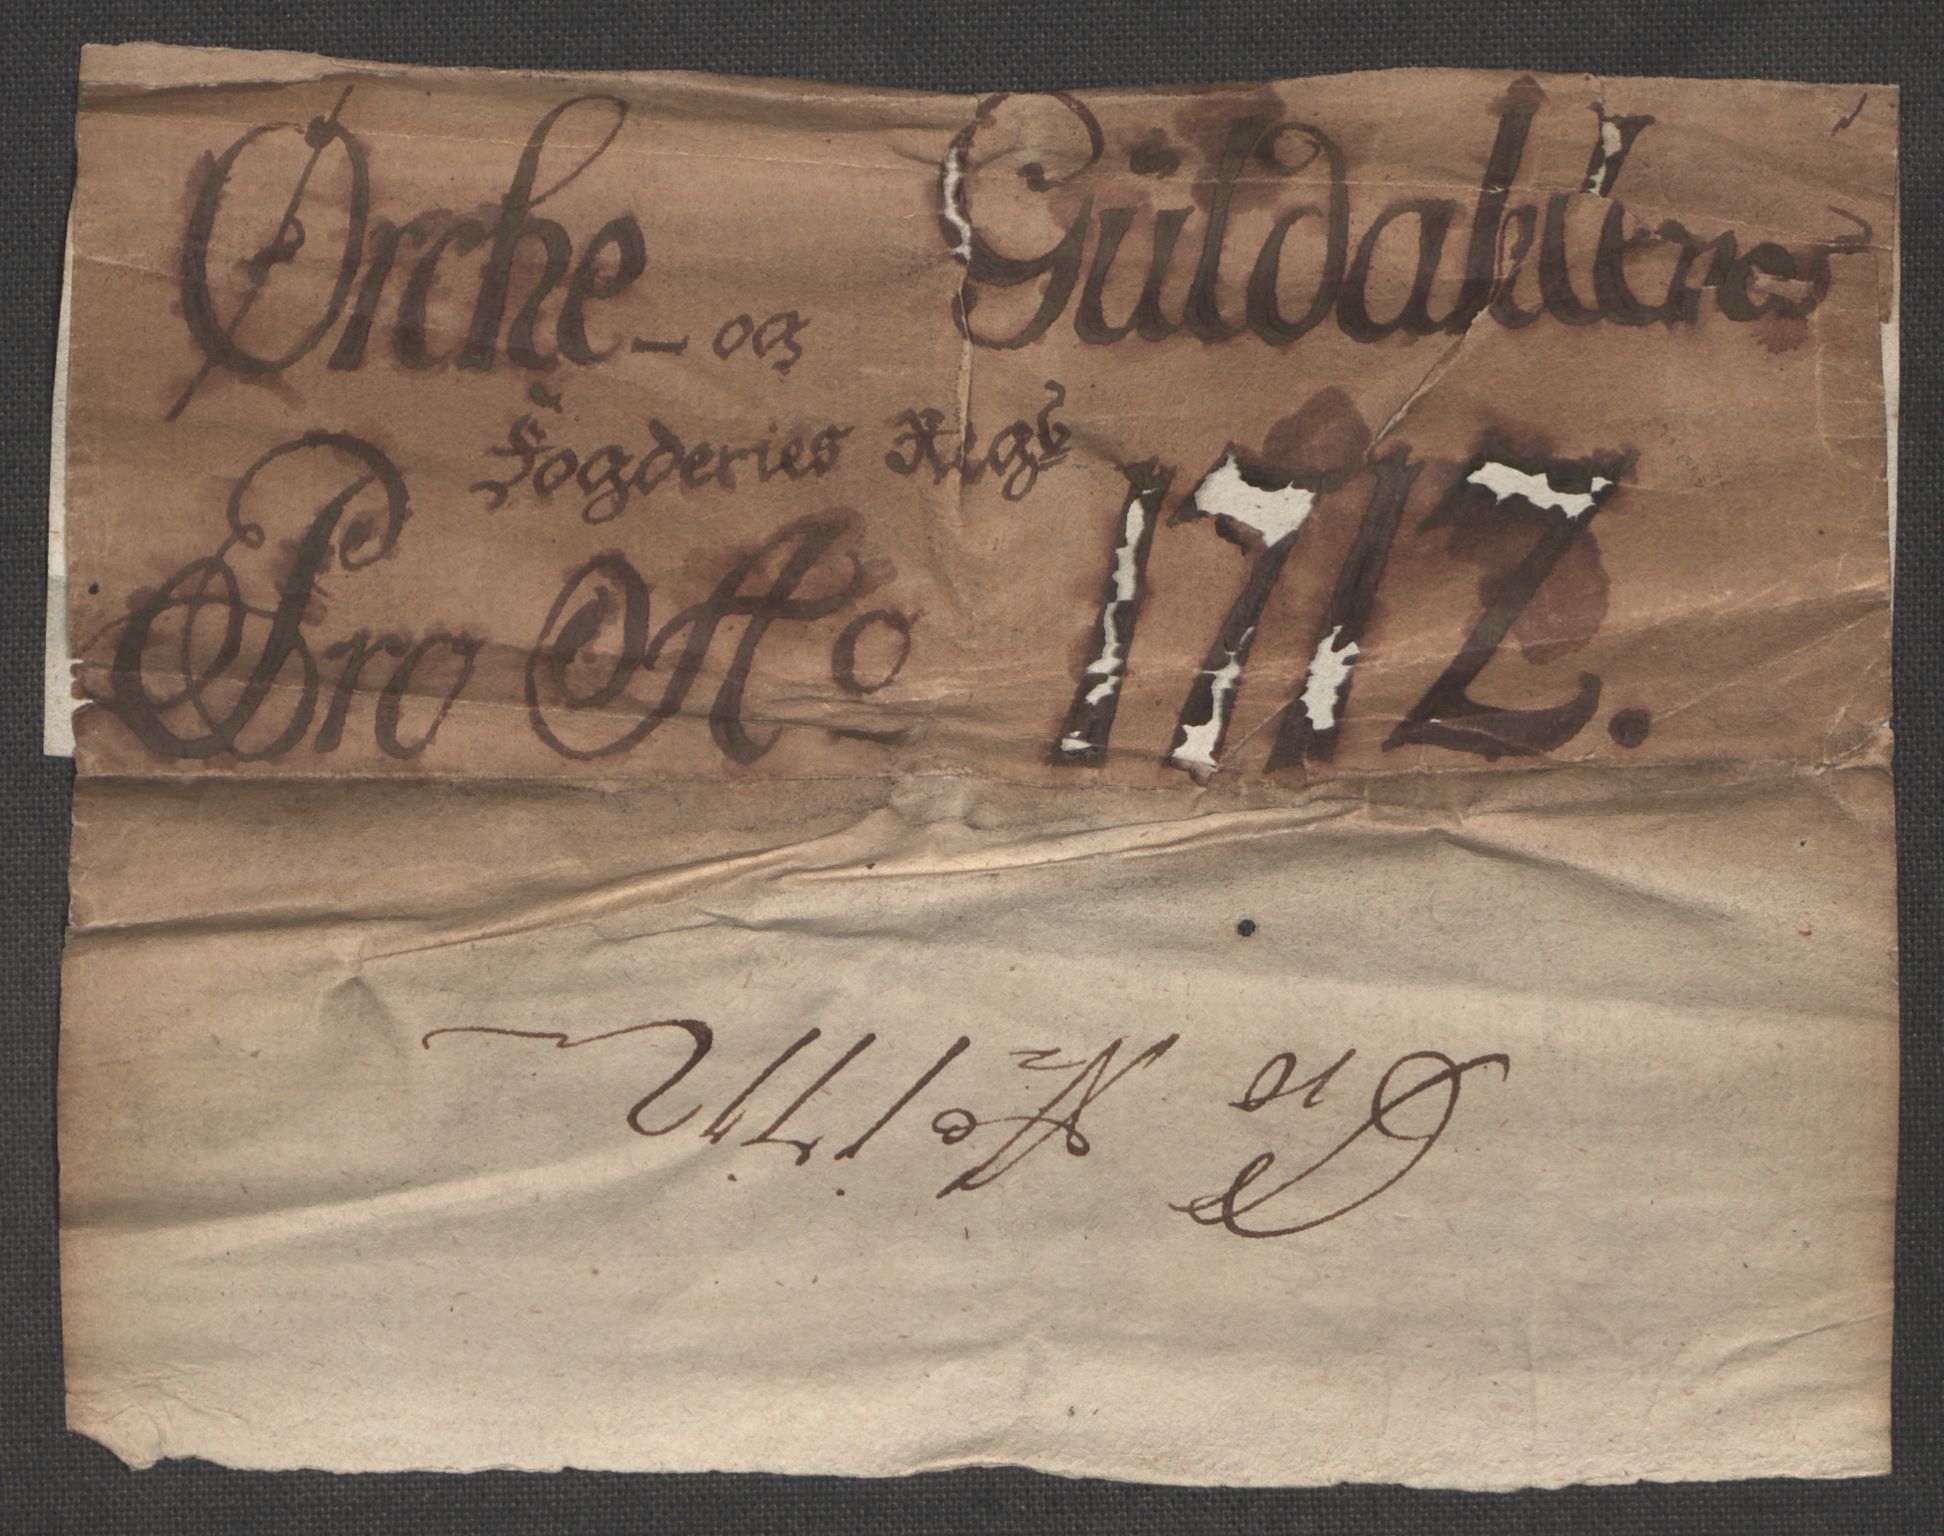 Ørche - og Güldahlernes
Fogderies Regb
Pro Ao 1712.
Pro Ao 1712